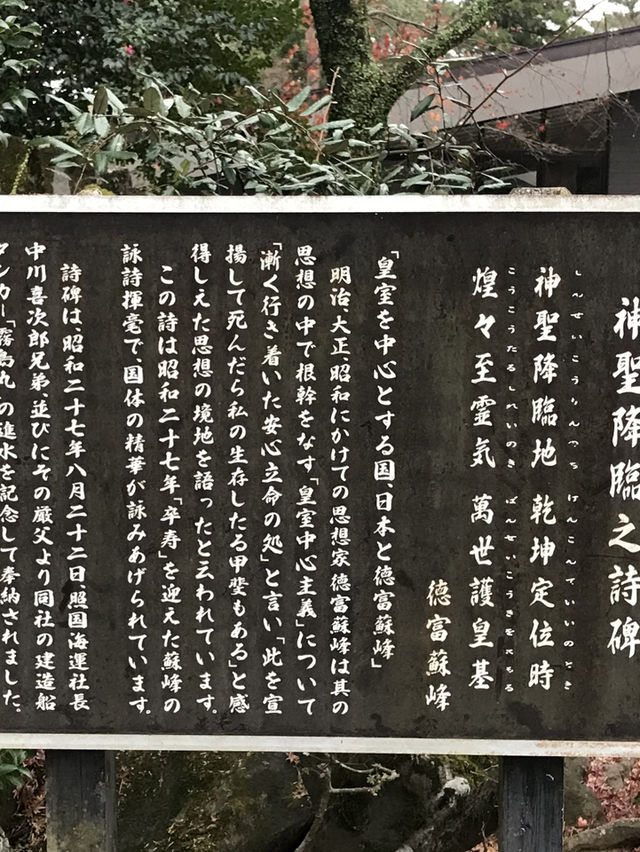 神聖降臨之詩碑
しんせいこうりんのち けんこんていいのとき
神聖降臨地 乾坤定位時
こうこうたるしれいのき ばんせいこうきをまもる
煌々至霊気 萬世護皇基
徳富蘇峰
「皇室を中心とする国、日本と徳富蘇峰」
明治、大正、昭和にかけての思想家徳富蘇峰は其の
思想の中で根幹をなす「皇室中心主義」について
「漸く行き着いた安心立命の処」と言い「此を宣
揚して死んだら私の生存したる甲斐もある」と感
得しえた思想の境地を語ったと云われています。
この詩は昭和二十七年「卒寿」を迎えた蘇峰の
詠詩揮毫で、国体の精華が詠みあげられています。
詩碑は、昭和二十七年八月二十二日、照国海運社長
中川喜次郎兄弟、並びにその厳父より同社の建造船
タンカー「霧島丸」の進水を記念して奉納されました。